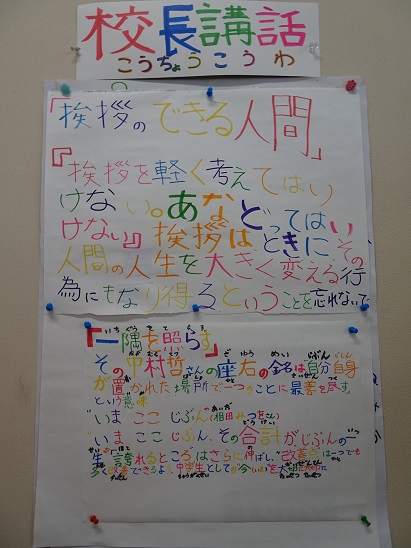 校長講話
こうちょうこうわ
「挨拶のできる人間」
『挨拶を軽く考えてはい
けない。あなどってはい
けない』挨拶はときに、その
人間の人生を大きく変える行
為にもなり得るということを忘れないで
「一隅を照らす」
いちぐう て
その中村哲さんの座右の銘は自分自身
が置かれた場所で一つのことに最善を尽す
という意味
"いま ここ じぶん"(相田みつをさん)
"いま ここ じぶん、その合計がじぶんの一
生"誇れるところはさらに伸ばし、"改善点"は一つでも
多く改善できるよう、中学生としての